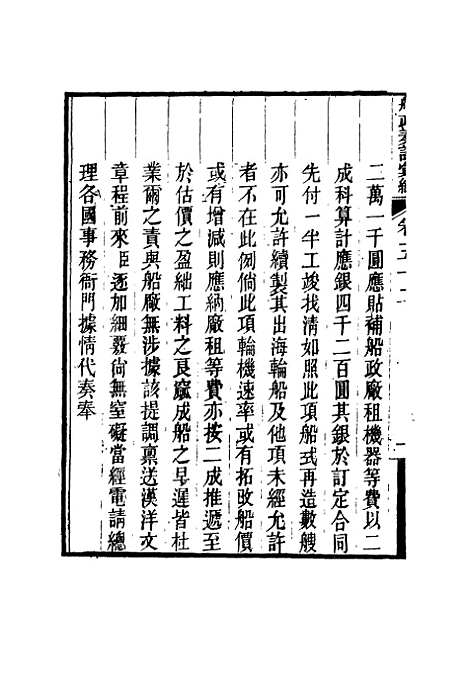 二萬一千圓應貼補船政廠租機器等費以二
成科算計應銀四千二百圓其銀於訂定合同
先付一半工竣找清如照此項船式再造數艘
亦可允許續製其出海輪船及他項未經允許
者不在此例倘此項輪機速率或有拓改船價
或有增減則應納廠租等費亦按二成推遞至
於估價之盈絀工料之良窳成船之早遲皆杜
業爾之責與船廠無涉據該提調稟送漢洋文
章程前來臣逐加細覈尙無窒礙當經電請總
理各國事務衙門據情代奏奉